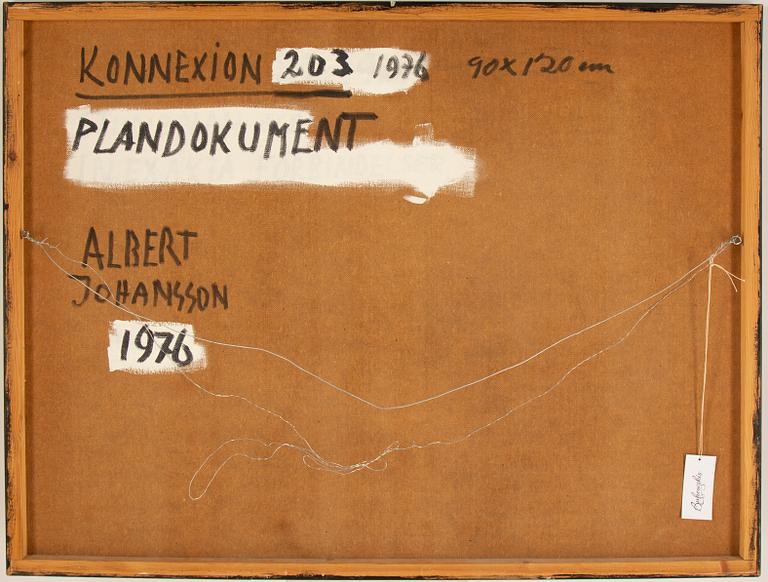 KONNEXION 203 1976 90X120 cm
PLANDOKUMENT
ALBERT
JOHANSSON
1976